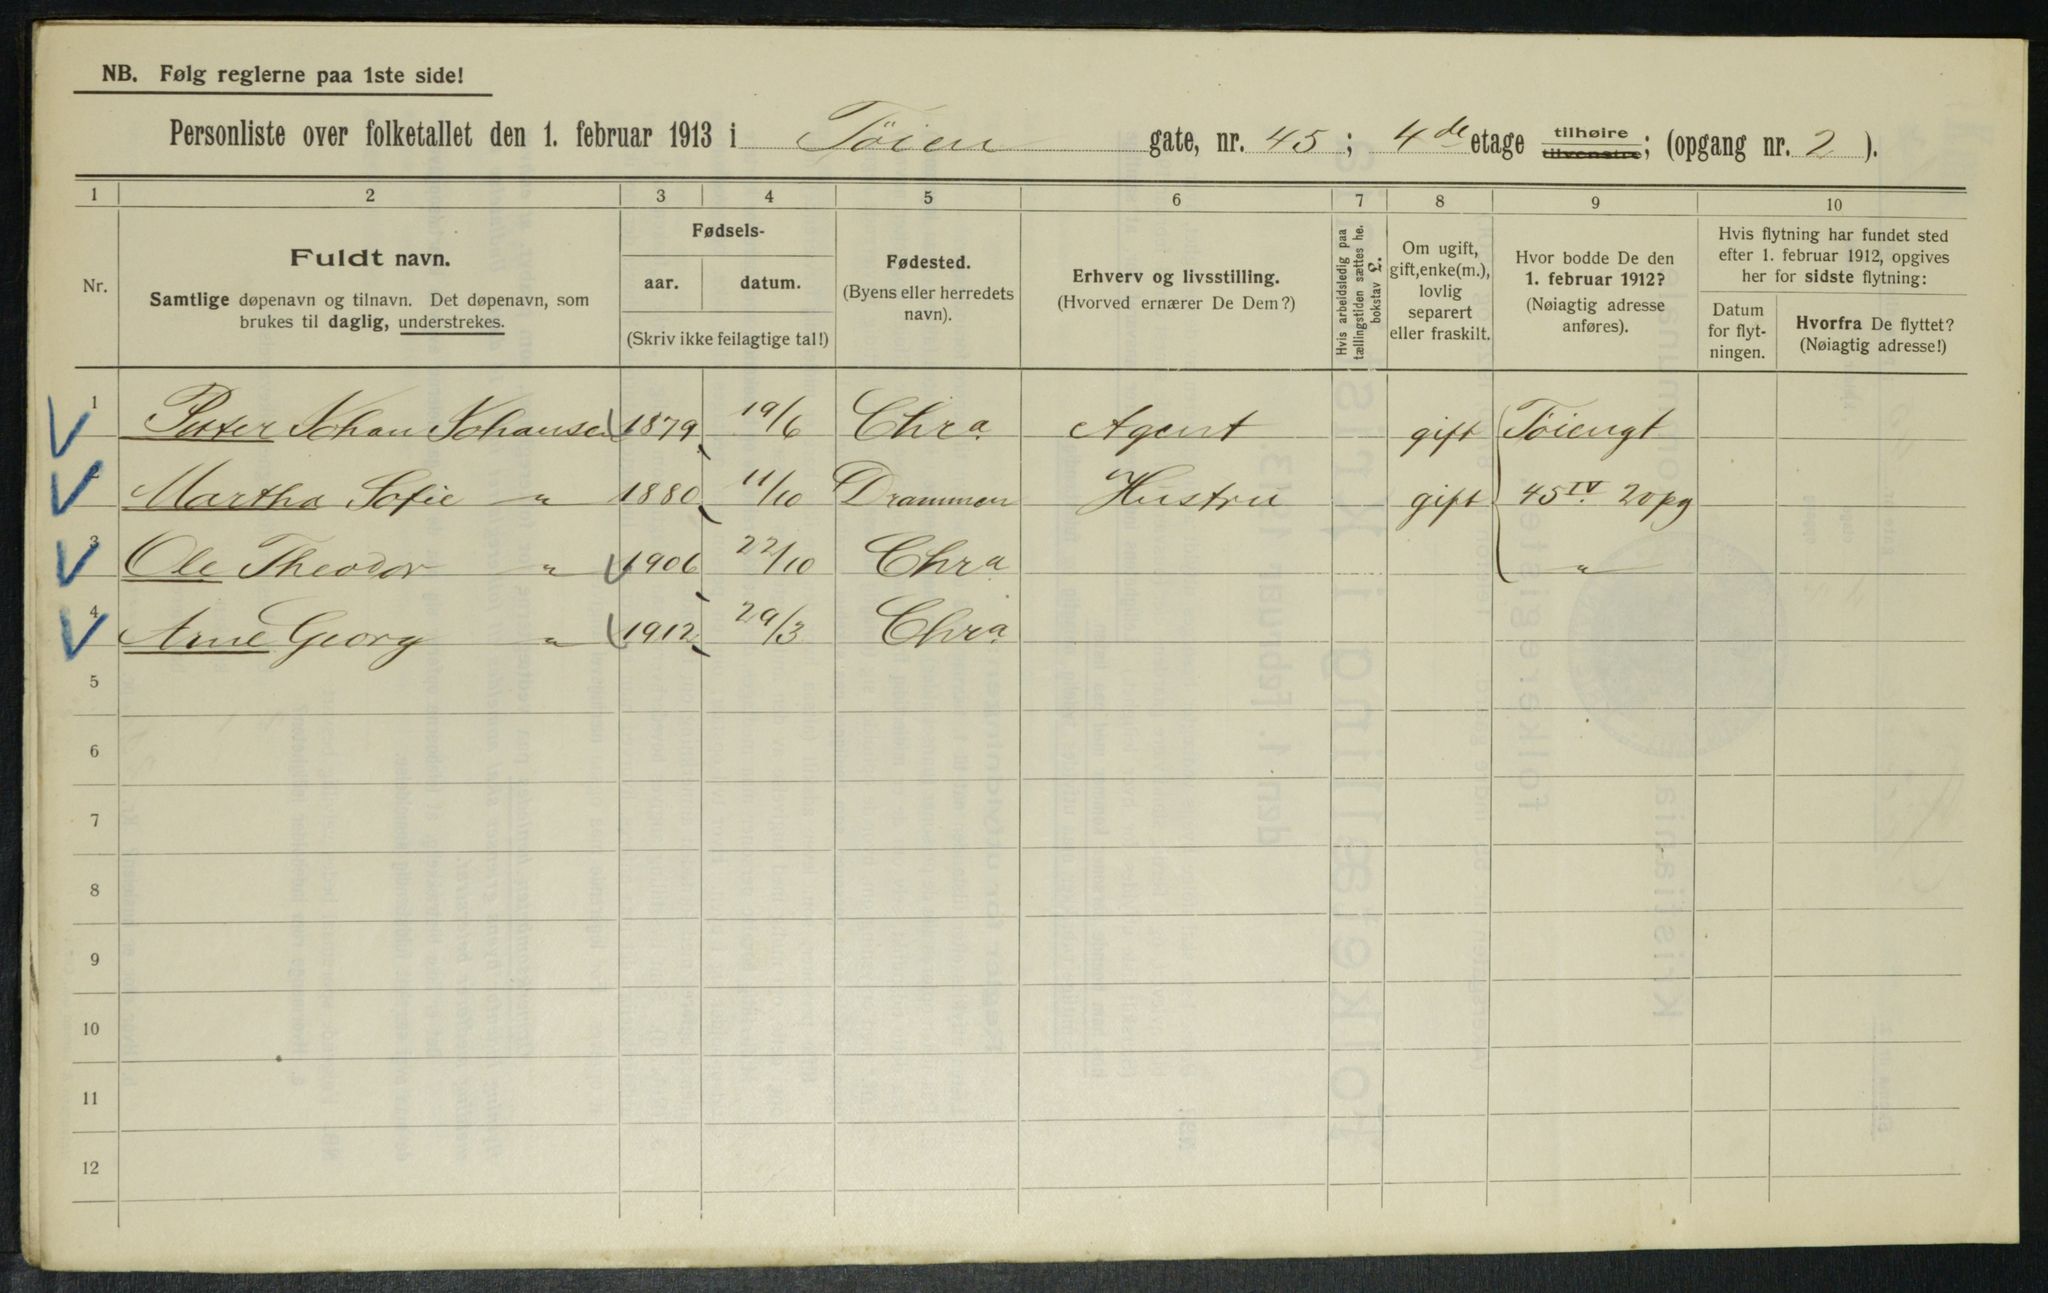 NB. Følg reglerne paa 1ste side!
Personliste over folketallet den 1. februar 1913 i Tøien gate, nr. 45; 4de etage tilhøire tilvenstre; (opgang nr. 2).
1 2 3 4 5 6 7 8 9 10
Nr.
Fuldt navn.
Samtlige døpenavn og tilnavn. Det døpenavn, som
brukes til daglig, understrekes.
Fødsels-
aar. datum.
(Skriv ikke feilagtige tal!)
Fødested.
(Byens eller herredets
navn).
Erhverv og livsstilling.
(Hvorved ernærer De Dem?)
Hvis arbeidsledig paa
tællingstiden sættes he.
bokstav g.
Om ugift,
gift, enke(m.),
lovlig
separert
eller fraskilt.
Hvor bodde De den
1. februar 1912?
(Nøiagtig adresse
anføres).
Hvis flytning har fundet sted
efter 1. februar 1912, opgives
her for sidste flytning:
Datum
for flyt-
ningen.
Hvorfra De flyttet?
(Nøiagtig adresse!)
1 Petter Johan Johansen 1879 19/6 Chra. Agent gift Tøiengt
2 Martha Sofie " 1880 11/10 Drammen Hustru gift 45 IV 2opg
3 Ole Theodor " 1906 22/10 Chra "
4 Arne Georg " 1912 29/3 Chra.
5
6
7
8
9
10
11
12